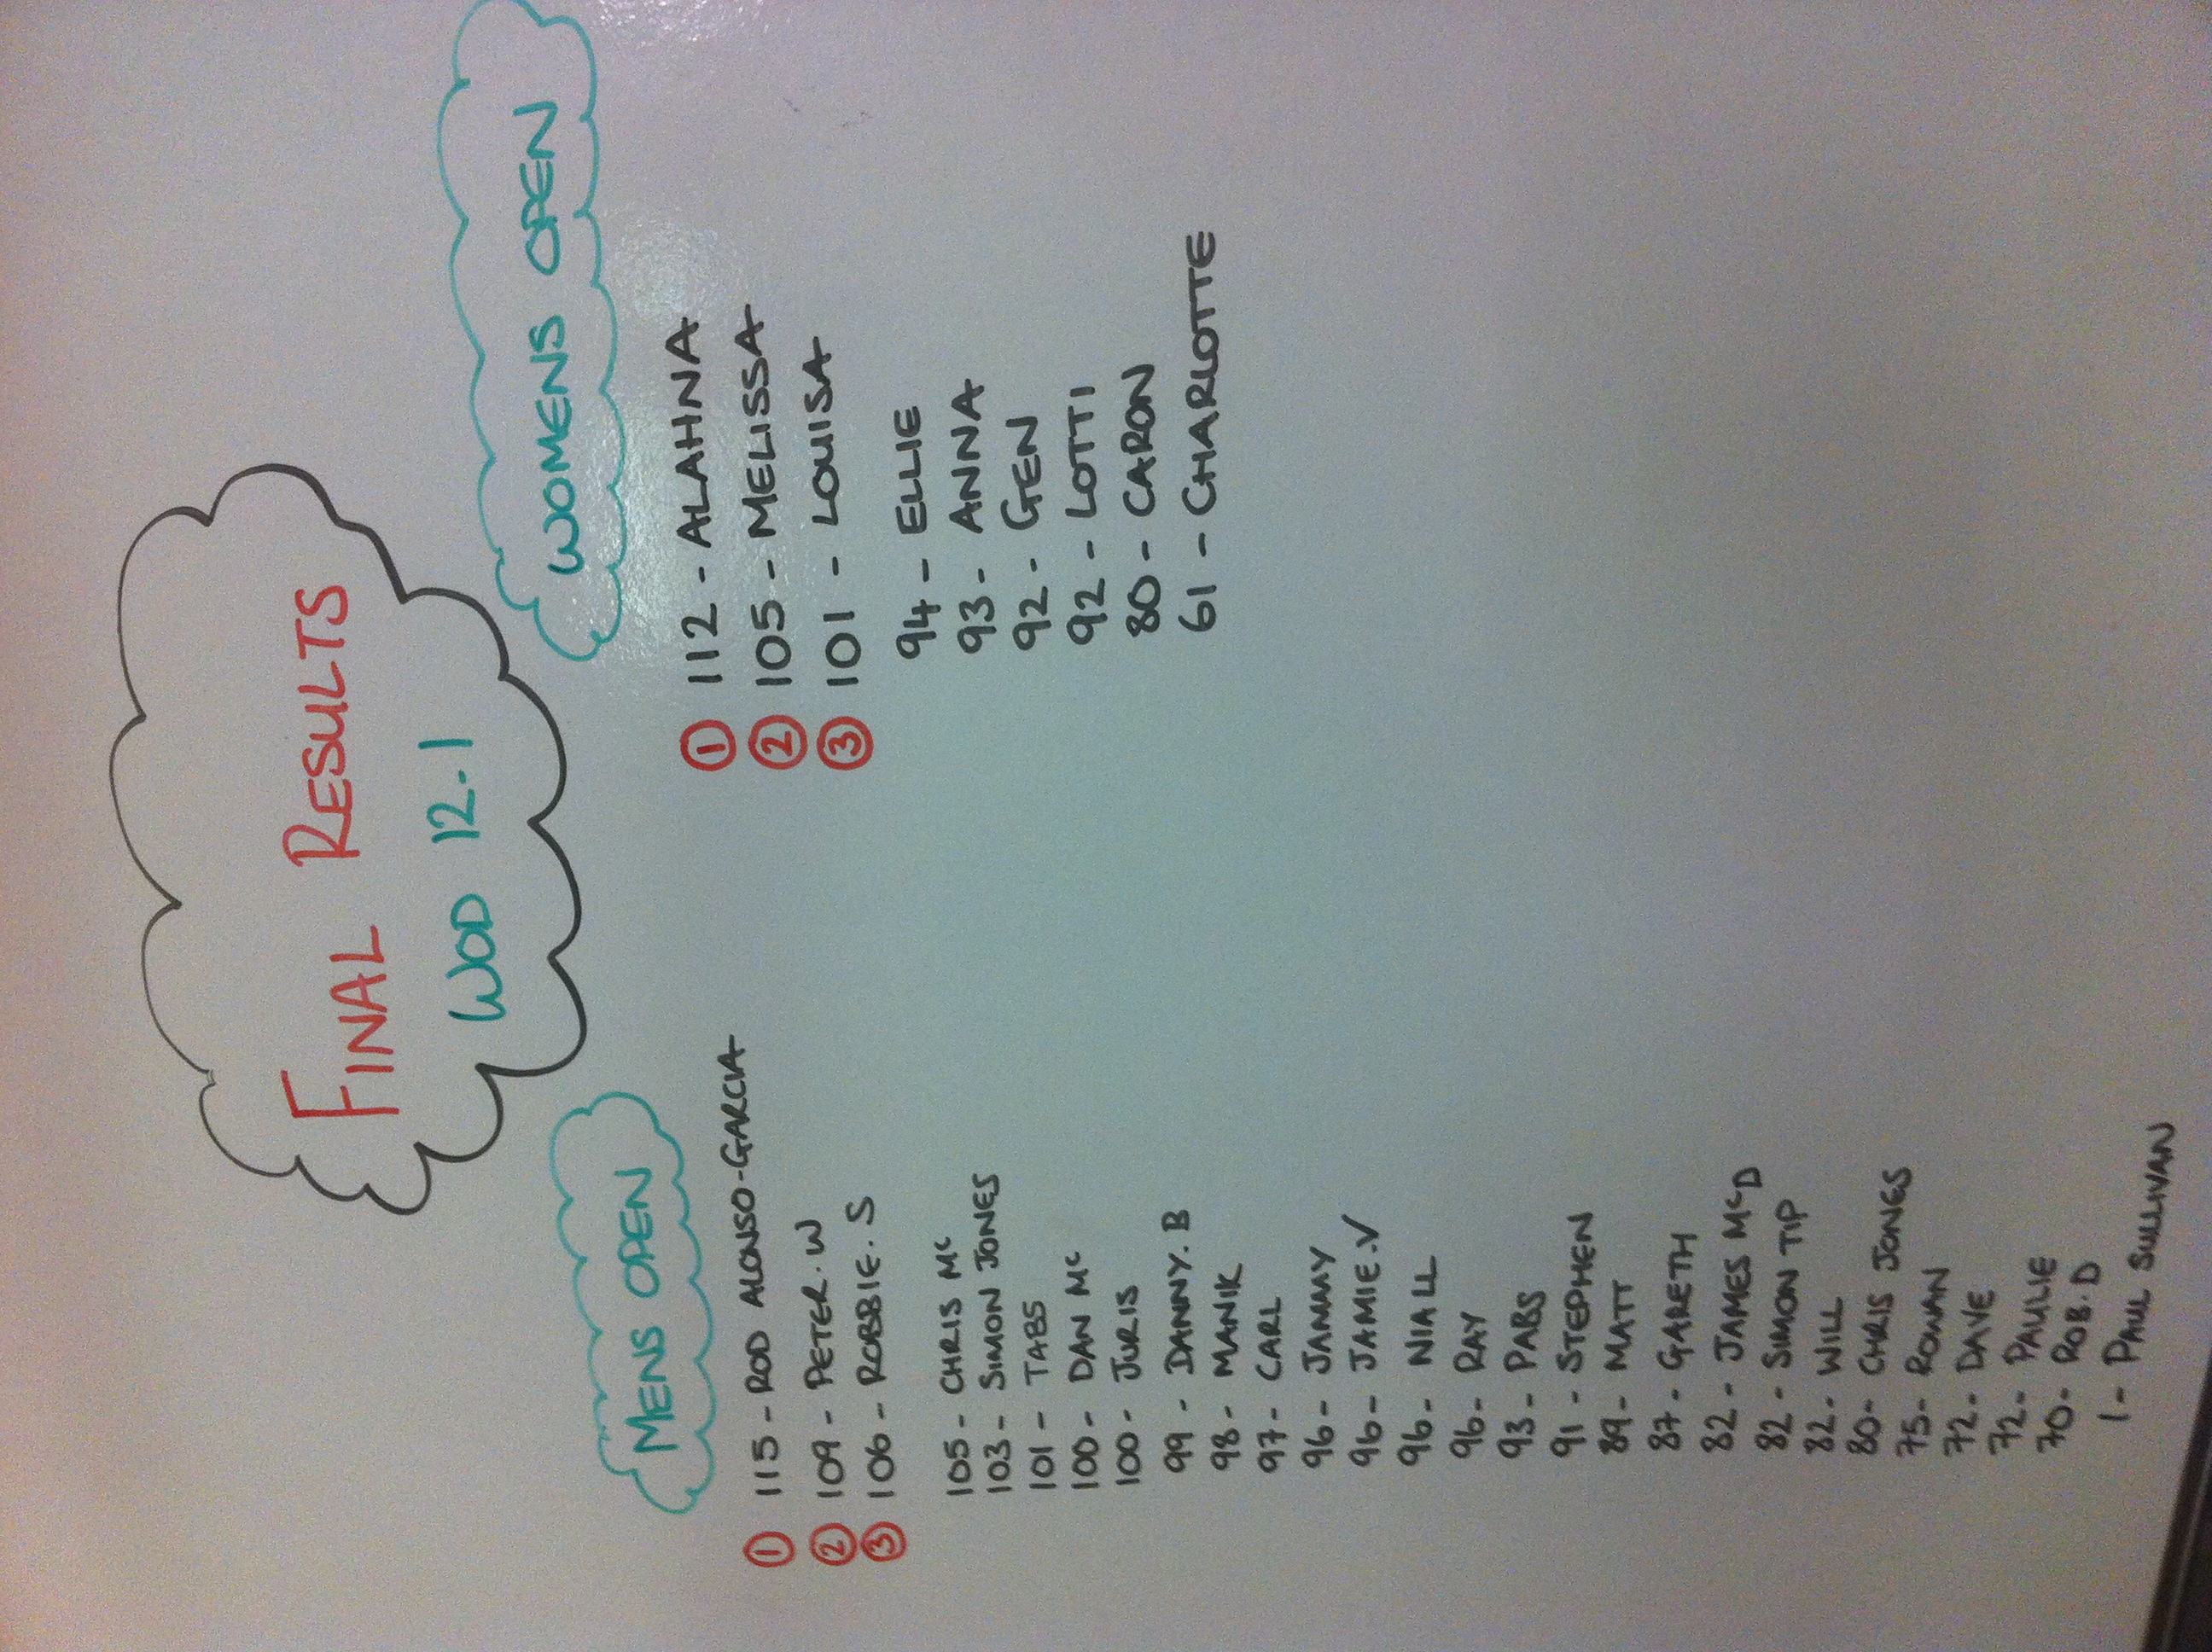 FINAL RESULTS
WOD 12.1
MENS OPEN
① 115 - ROD ALONSO-GARCIA
② 109 - PETER.W
③ 106 - ROBBIE.S
105 - CHRIS Mc
103 - SIMON JONES
101 - TABS
100 - DAN Mc
100 - JURIS
99 - DANNY.B
98 - MANIK
97 - CARL
96 - JAMMY
96 - JAMIE.V
96 - NIALL
96 - RAY
93 - PABS
91 - STEPHEN
89 - MATT
87 - GARETH
82 - JAMES McD
82 - SIMON TIP
82 - WILL
80 - CHRIS JONES
75 - ROWAN
72 - DAVE
72 - PAULIE
70 - ROB.D
1 - PAUL SULLIVAN
WOMENS OPEN
① 112 - ALAHNA
② 105 - MELISSA
③ 101 - LOUISA
94 - ELLIE
93 - ANNA
92 - GEN
92 - LOTTI
80 - CARON
61 - CHARLOTTE